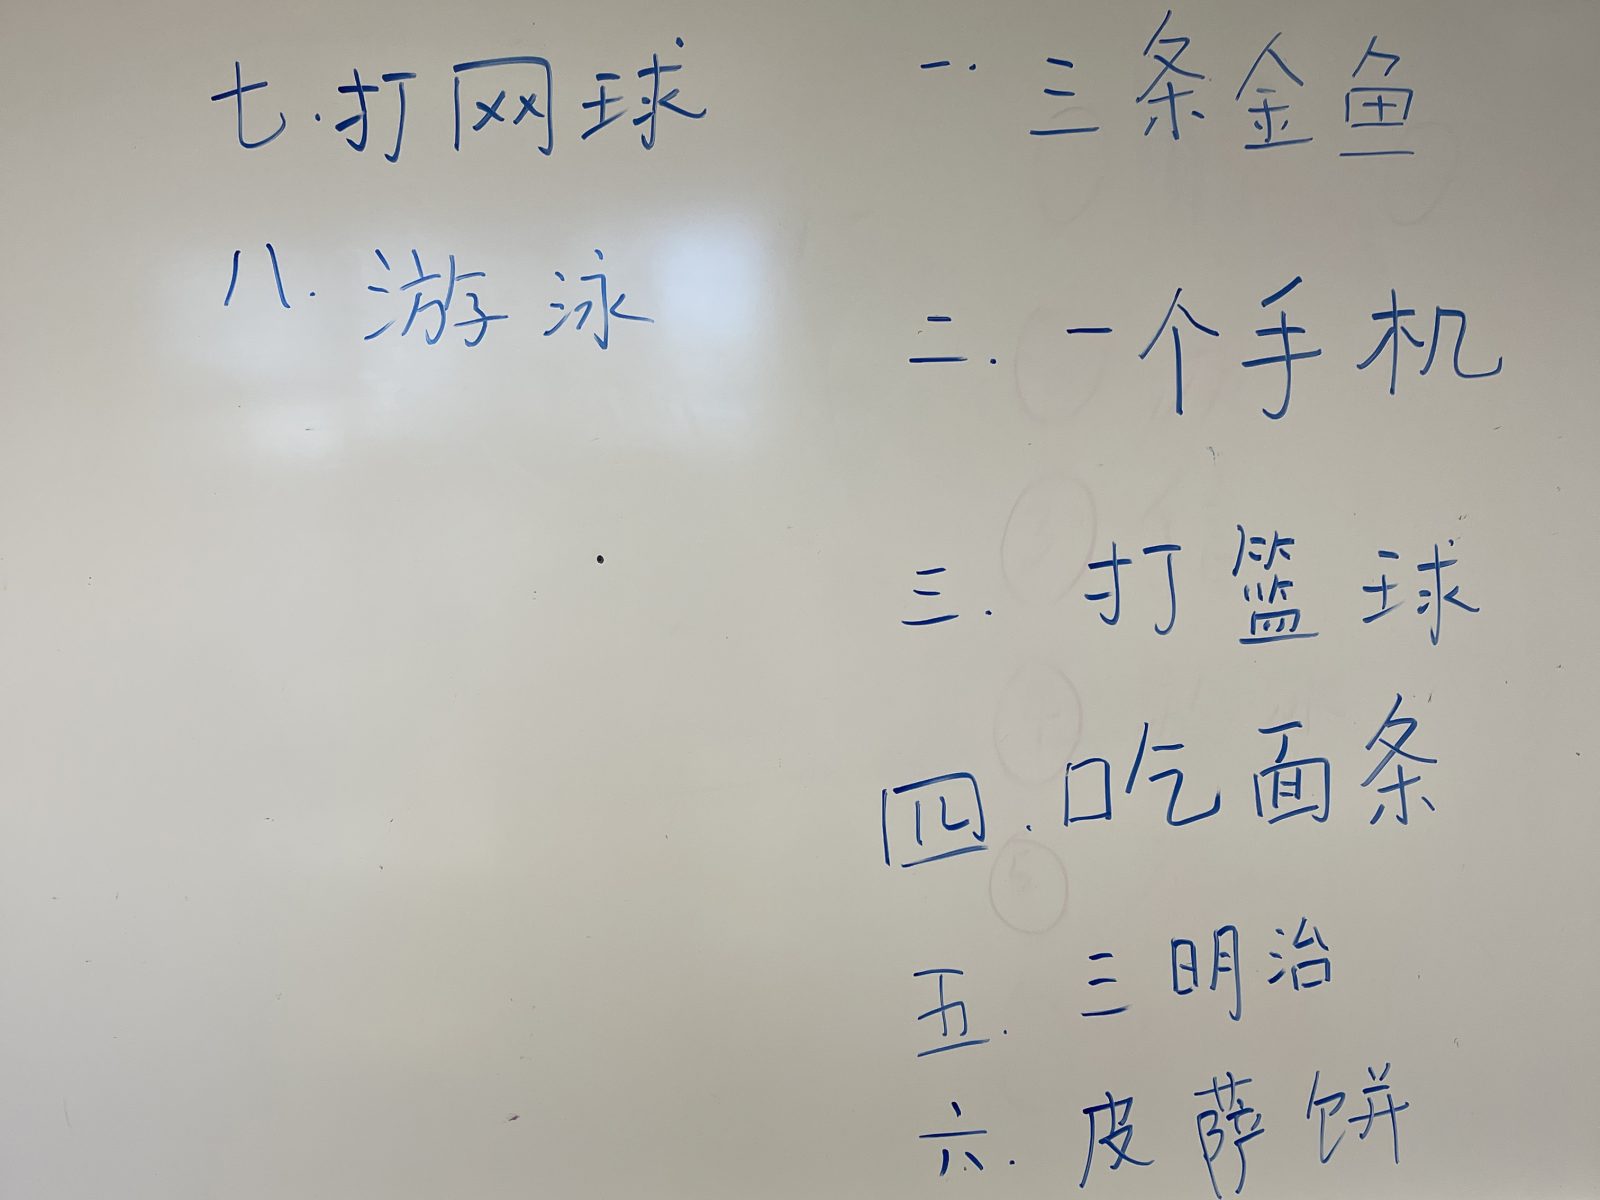 一. 三条金鱼
二. 一个手机
三. 打篮球
四. 吃面条
五. 三明治
六. 皮萨饼
七. 打网球
八. 游泳